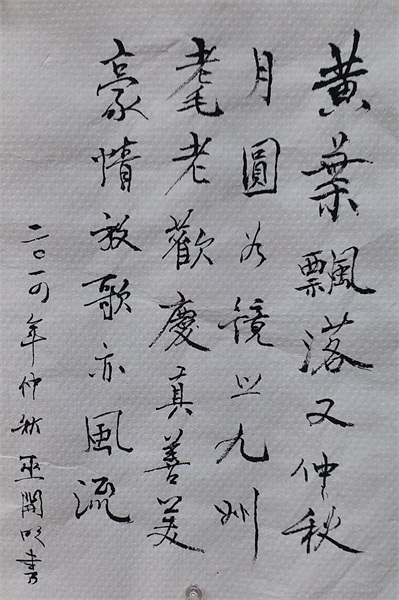 黃葉飄落又仲秋
月圓鏡九州
耄老歡慶真善美
豪情放歌亦風流
二〇一四年仲秋巫開明書